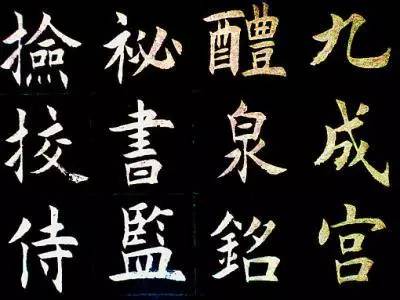 九成宮
醴泉銘
祕書監
撿挍侍